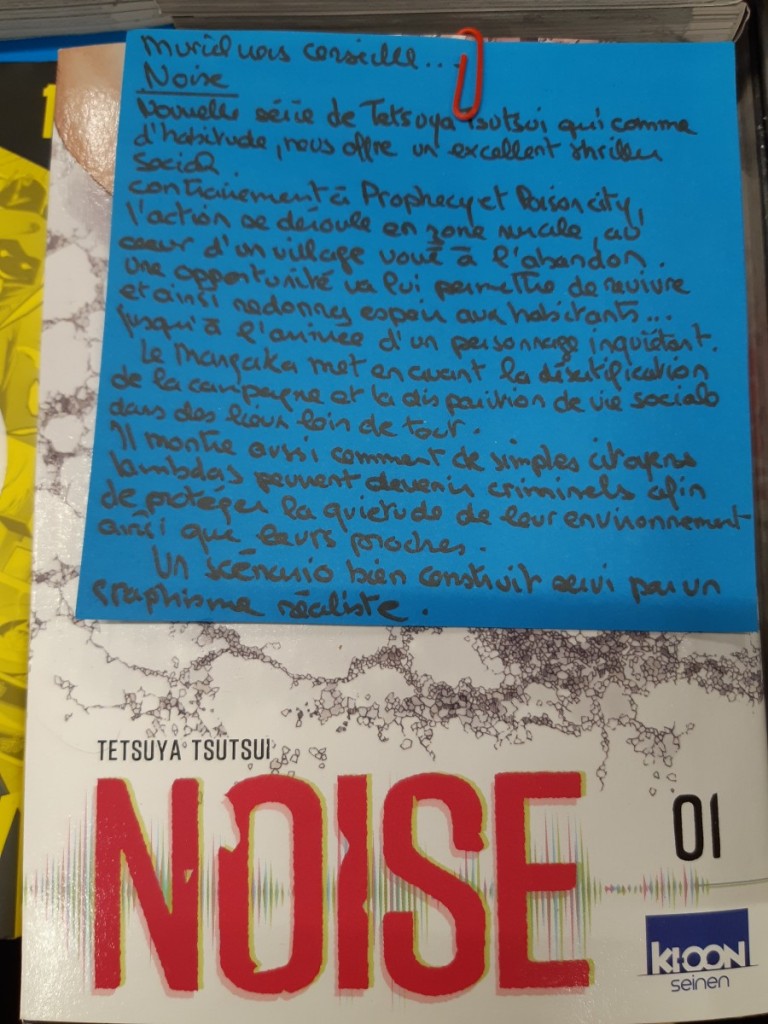 Muriel vous conseille...
Noise
Nouvelle série de Tetsuya Tsutsui qui comme
d'habitude, nous offre un excellent thriller
social.
contrairement à Prophecy et Poison city,
l'action se déroule en zone rurale, au
coeur d'un village voué à l'abandon.
une opportunité va lui permettre de revivre
et ainsi redonner espoir aux habitants...
jusqu'à l'arrivée d'un personnage inquiétant.
Le Mangaka met en avant la désertification
de la campagne et la disparition de vie sociale
dans des lieux loin de tout.
Il montre aussi comment de simples citoyens
lambdas peuvent devenir criminels afin
de protéger la quiétude de leur environnement
ainsi que leurs proches.
Un scénario bien construit servi par un
graphisme réaliste.
TETSUYA TSUTSUI
NOISE
01
KI-OON
seinen